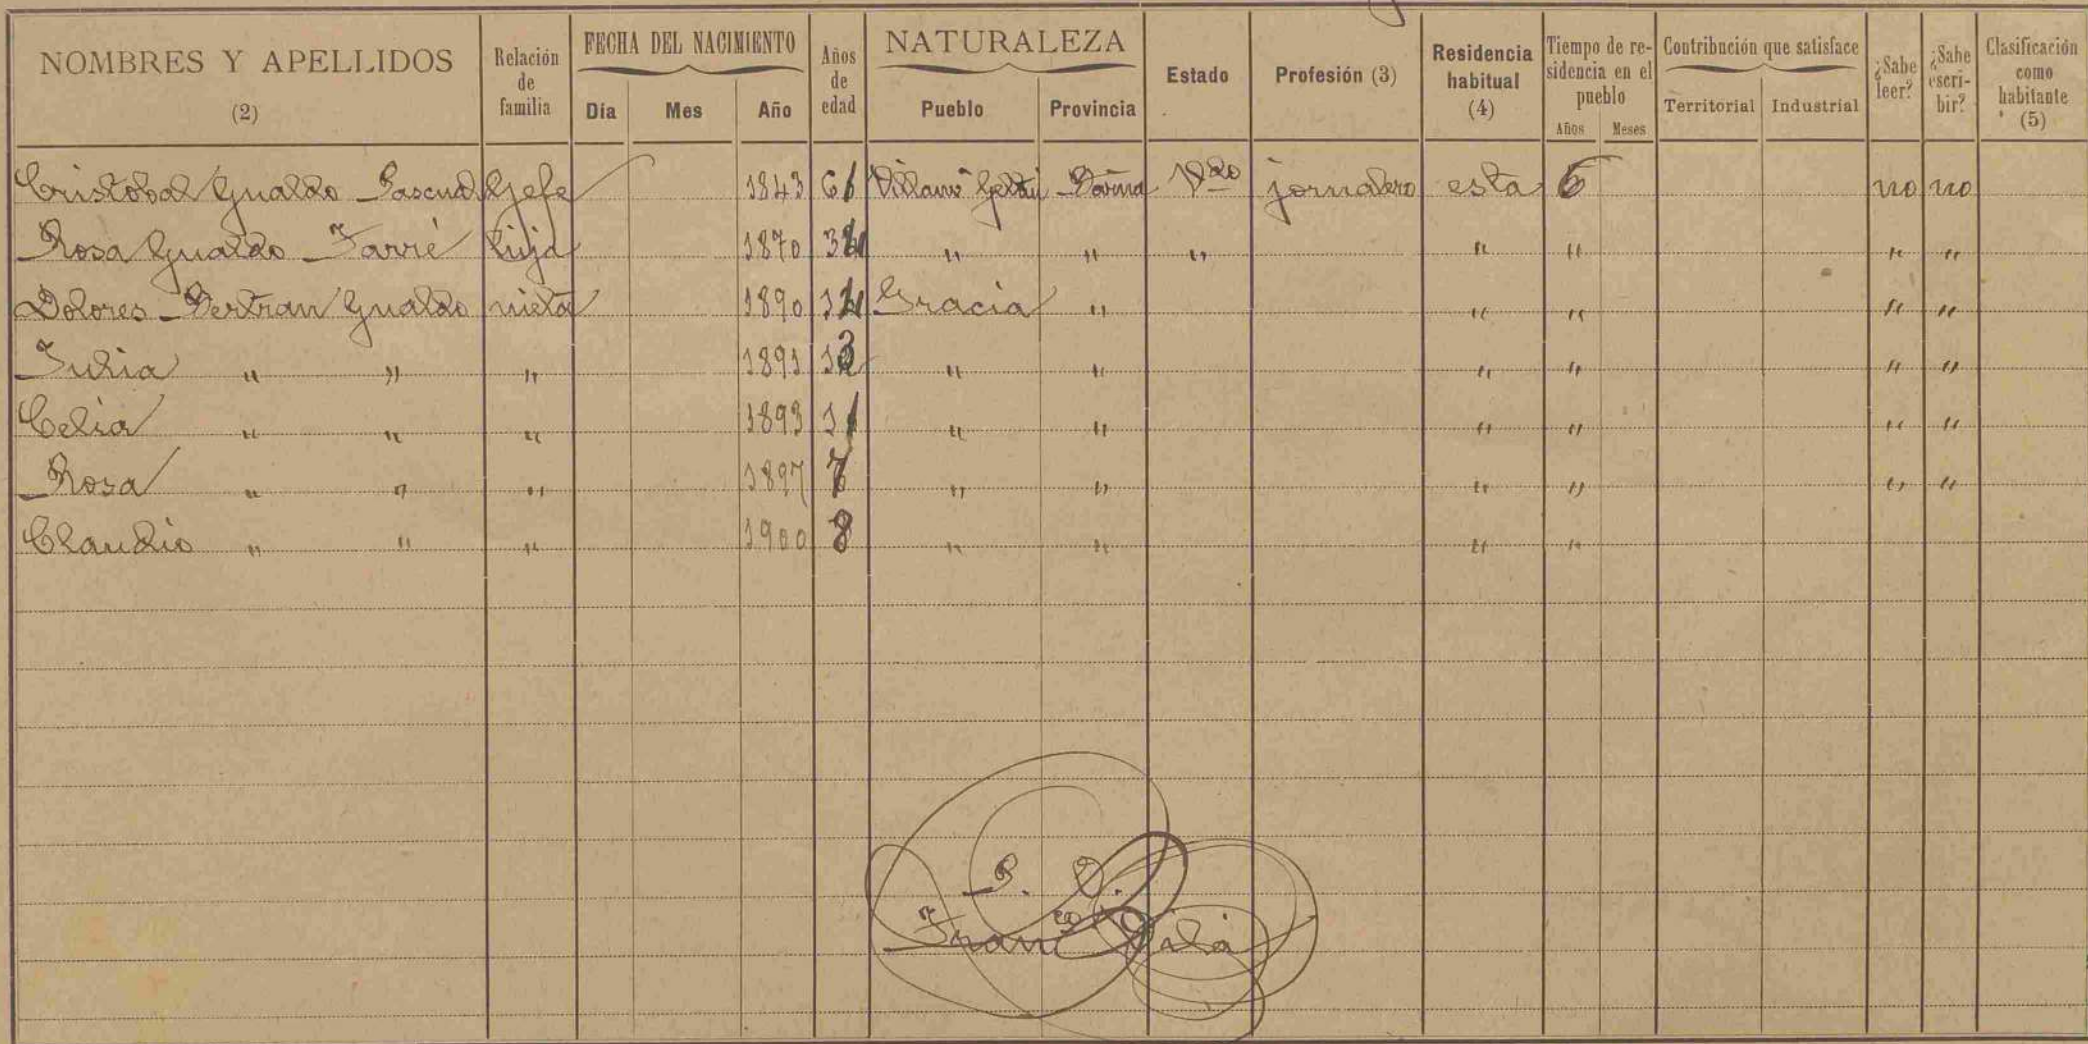 NOMBRES Y APELLIDOS (2) Relación de familia FECHA DEL NACIMIENTO Día Mes Año Años de edad NATURALEZA Pueblo Provincia Estado Profesión (3) Residencia habitual (4) Tiempo de residencia en el pueblo Años Meses Contribución que satisface Territorial Industrial ¿Sabe leer? ¿Sabe escribir? Clasificación como habitante (5)
Cristobal Gualdo Pascual Gefe 1843 61 Villanª Geltrú V.do jornalero esta 6 no no
Rosa Gualdo Farré hija 1870 34 " " " " " " "
Dolores Bertran Gualdo nieta 1890 14 Gracia " " " " "
Julia " " " 1891 13 " " " " " "
Celia " " " 1893 11 " " " " " "
Rosa " " " 1897 7 " " " " " "
Claudio " " " 1900 8 " " " "
P. O.
Franco Vilá